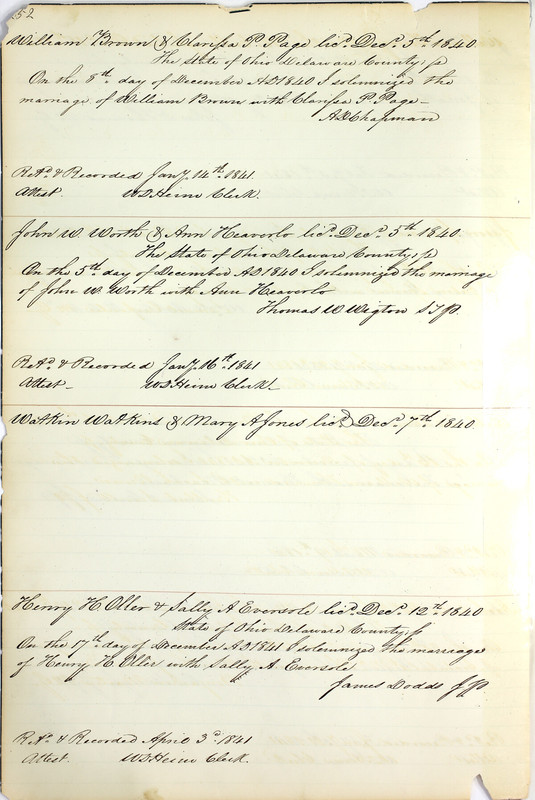 52
William Brown & Clarissa P. Page lic.d Dec.r 5th 1840
The State of Ohio Delaware County; ss
On the 8th day of December AD 1840 I solemnized the
marriage of William Brown with Clarissa P. Page—
A D Chapman
Ret.d & Recorded Jany. 14th 1841
Attest. W D Heim Clerk.
John W. Worth & Ann Heaverlo lic.d Dec.r 5th 1840
The State of Ohio Delaware County; ss
On the 5th day of December AD 1840 I solemnized the marriage
of John W. Worth with Ann Heaverlo
Thomas W Wigton J P.
Ret.d & Recorded Jany. 16th 1841
Attest— W D Heim Clerk—
Watkin Watkins & Mary A Jones lic.d Dec.r 7th 1840
Henry H Oller & Sally A Eversole lic.d Dec.r 12th 1840
State of Ohio Delaware County ss
On the 17th day of December AD 1841 I solemnized the marriage
of Henry H. Oller with Sally A. Eversole
James Dodds J P.
Ret.d & Recorded April 3d 1841
Attest. W D Heim Clerk.